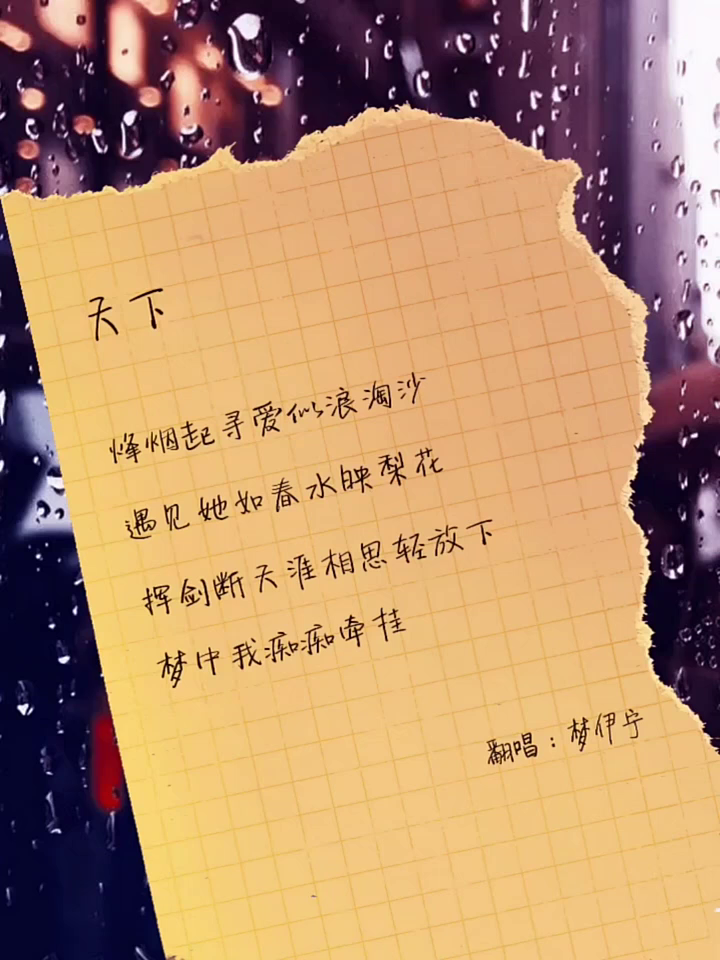 天下
烽烟起寻爱似浪淘沙
遇见她如春水映梨花
挥剑断天涯相思轻放下
梦中我痴痴牵挂
翻唱：梦伊宁